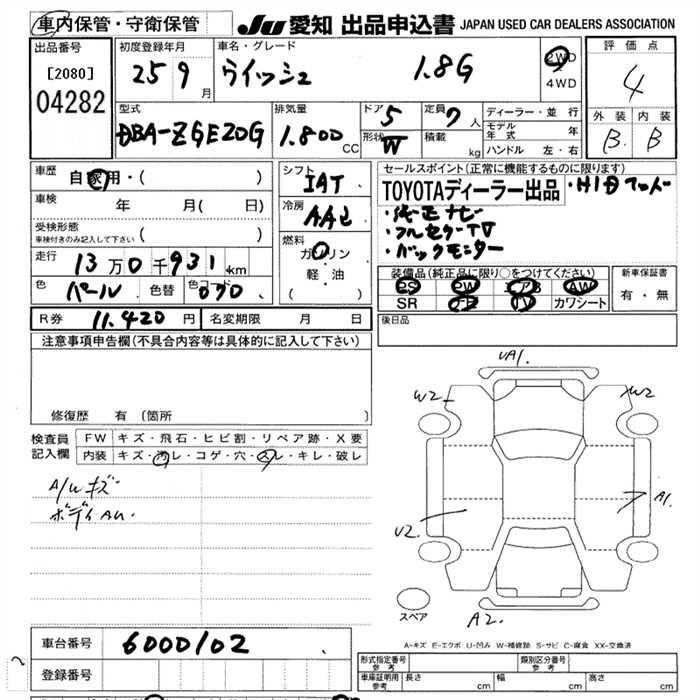 車内保管・守衛保管
JU 愛知 出品申込書 JAPAN USED CAR DEALERS ASSOCIATION
出品番号
[2080]
04282
初度登録年月
25 9月
車名・グレード
ウイッシュ 1.8G
2WD
4WD
評価点
4
外装 内装
B B
型式
DBA-ZGE20G
排気量
1.800 CC
ドア 5
形状 W
定員 7人
積載 kg
ディーラー・並行
モデル年式 年
ハンドル 左・右
車歴 自家用・( )
車検 年 月( 日)
受検形態
車検付きのみ記入して下さい ( )
走行 13万0千931km
色 パール 色替 色コード 070
シフト
IAT
冷房
AAC
燃料
ガソリン
軽・油
( )
セールスポイント(正常に機能するものに限ります)
TOYOTAディーラー出品 ・HID
・純正ナビ
・フルセグTV
・バックモニター
装備品(純正品に限り○をつけてください)
PS PW エアB AW
SR TV カワシート
新車保証書
有・無
R券 11.420円 名変期限 月 日
後日品
注意事項申告欄(不具合内容等は具体的に記入して下さい)
修復歴 有 (箇所 )
検査員記入欄
FW キズ・飛石・ヒビ割・リペア跡・X要
内装 キズ・汚レ・コゲ・穴・スレ・キレ・破レ
A/Wキズ
ボディAU.
UA1.
W2
W2
A1.
U2.
A2.
スペア
A-キズ E-エクボ U-凹み W-補修跡 S-サビ C-腐食 XX-交換済
車台番号 6000102
登録番号
形式指定番号 参考
類別区分番号 参考
車庫証明用 参考 長さ cm 幅 cm 高さ cm